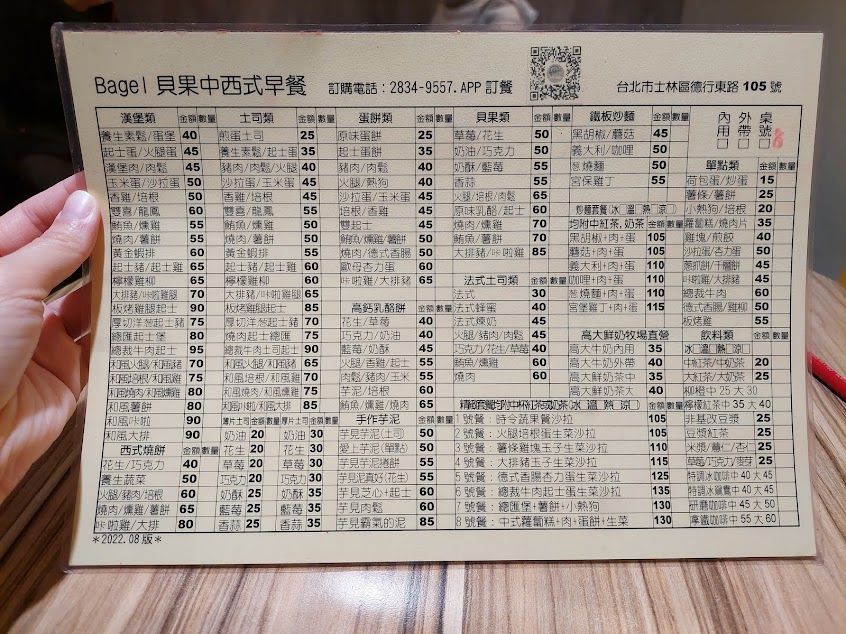 Bagel 貝果中西式早餐 訂購電話：2834-9557.APP 訂餐 台北市士林區德行東路 105 號
漢堡類 金額 數量
養生素鬆/蛋堡 40
起士蛋/火腿蛋 45
漢堡肉/肉鬆 45
玉米蛋/沙拉蛋 50
香雞/培根 50
雙喜/龍鳳 60
鮪魚/燻雞 55
燒肉/薯餅 55
黃金蝦排 60
起士豬/起士雞 65
檸檬雞柳 65
大排豬/咔啦雞腿 70
板烤雞腿起士 90
厚切洋蔥起士豬 75
總匯起士堡 80
總裁牛肉起士 95
和風火腿/和風豬 75
和風培根/和風雞 75
和風燒肉/和風燻雞 80
和風薯餅 80
和風咔啦 90
和風大排 90
西式燒餅 金額 數量
花生/巧克力 40
養生蔬菜 50
火腿/豬肉/培根 60
燒肉/燻雞/薯餅 65
咔啦雞/大排 80
*2022.08版*
土司類 金額 數量
煎蛋土司 25
養生素鬆/起士蛋 35
豬肉/肉鬆/火腿 40
沙拉蛋/玉米蛋 45
香雞/培根 45
雙喜/龍鳳 55
鮪魚/燻雞 50
燒肉/薯餅 50
黃金蝦排 55
起士豬/起士雞 60
檸檬雞柳 60
大排豬/咔啦雞腿 65
板烤雞腿起士 85
厚切洋蔥起士豬 70
燒肉起士總匯 75
總裁牛肉土司起士 90
和風火腿/和風肉鬆 70
和風培根/和風雞 70
和風燻雞/和風燒肉 75
和風咔啦/和風大排 85
薄片土司 金額 數量 厚片土司 金額 數量
奶油 20 奶油 30
花生 20 花生 30
草莓 20 草莓 30
巧克力 20 巧克力 30
奶酥 25 奶酥 35
藍莓 25 藍莓 35
香蒜 25 香蒜 35
蛋餅類 金額 數量
原味蛋餅 25
起士蛋餅 35
豬肉/肉鬆 40
火腿/熱狗 40
沙拉蛋/玉米蛋 45
培根/香雞 45
雙起士 45
鮪魚/燻雞/薯餅 50
燒肉/德式香腸 50
歐母杏力蛋 60
咔啦雞/大排豬 65
高鈣乳酪餅 金額 數量
花生/草莓 40
巧克力/奶油 40
藍莓/奶酥 45
火腿/香雞/起士 55
肉鬆/豬肉/玉米 55
芋泥/培根 60
鮪魚/燻雞/燒肉 65
手作芋泥 金額 數量
芋見芋泥(土司) 50
愛上芋泥(單點) 50
芋見芋泥捲餅 55
芋見泥真好(花生) 55
芋見芝心+起士 60
芋見肉鬆 60
芋見霸氣的泥 85
貝果類 金額 數量
草莓/花生 50
奶油/巧克力 50
奶酥/藍莓 55
香蒜 55
火腿/培根/肉鬆 65
原味乳酪/起士 60
燒肉/燻雞 70
鮪魚/薯餅 70
大排豬/咔啦雞 85
法式土司類 金額 數量
法式 30
法式蜂蜜 40
法式煉奶 45
火腿/豬肉/肉鬆 45
巧克力/花生/草莓 40
培根/燻雞 60
燒肉 60
鐵板炒麵 金額 數量
黑胡椒/蘑菇 45
義大利/咖哩 50
蔥燒麵 50
宮保雞丁 55
炒麵套餐(冰□溫□熱□涼□)
均附中紅茶,奶茶 金額 數量
黑胡椒+肉+蛋 105
蘑菇+肉+蛋 105
義大利+肉+蛋 110
咖哩+肉+蛋 110
蔥燒麵+肉+蛋 110
宮堡雞丁+肉+蛋 115
高大鮮奶牧場直營
高大牛奶內用 35
高大牛奶外帶 40
高大鮮奶茶中 35
高大鮮奶茶大 40
精緻套餐均附中杯紅茶或奶茶(冰□溫□熱□涼□) 金額 數量
1 號餐：時令蔬果餐沙拉 105
2 號餐：火腿培根蛋生菜沙拉 105
3 號餐：薯條雞塊玉子生菜沙拉 110
4 號餐：大排豬玉子生菜沙拉 115
5 號餐：德式香腸杏力蛋生菜沙拉 125
6 號餐：總裁牛肉起士蛋生菜沙拉 135
7 號餐：總匯堡+薯餅+小熱狗 130
8 號餐：中式蘿蔔糕+肉+蛋餅+生菜 130
內用□ 外帶□ 桌號□ 8
單點類 金額 數量
荷包蛋/炒蛋 15
薯條/薯餅 25
小熱狗/培根 20
蘿蔔糕/燒肉片 35
雞塊/煎餃 40
沙拉蛋/杏力蛋 50
蔥抓餅/千層餅 45
咔啦雞/香雞 45
總裁牛肉 60
德式香腸/雞柳 50
板烤雞 55
飲料類 金額 數量
冰□溫□熱□涼□
中紅茶/中奶茶 20
大紅茶/大奶茶 25
柳橙中 25 大 30
檸檬紅茶中 35 大 40
非基改豆漿 25
豆漿紅茶 25
米漿/薏仁/杏仁 25
草莓/巧克力/麥芽 25
特調冰咖啡中 40 大 45
特調冰羅賓中 40 大 45
研磨咖啡中 45 大 50
拿鐵咖啡中 55 大 60